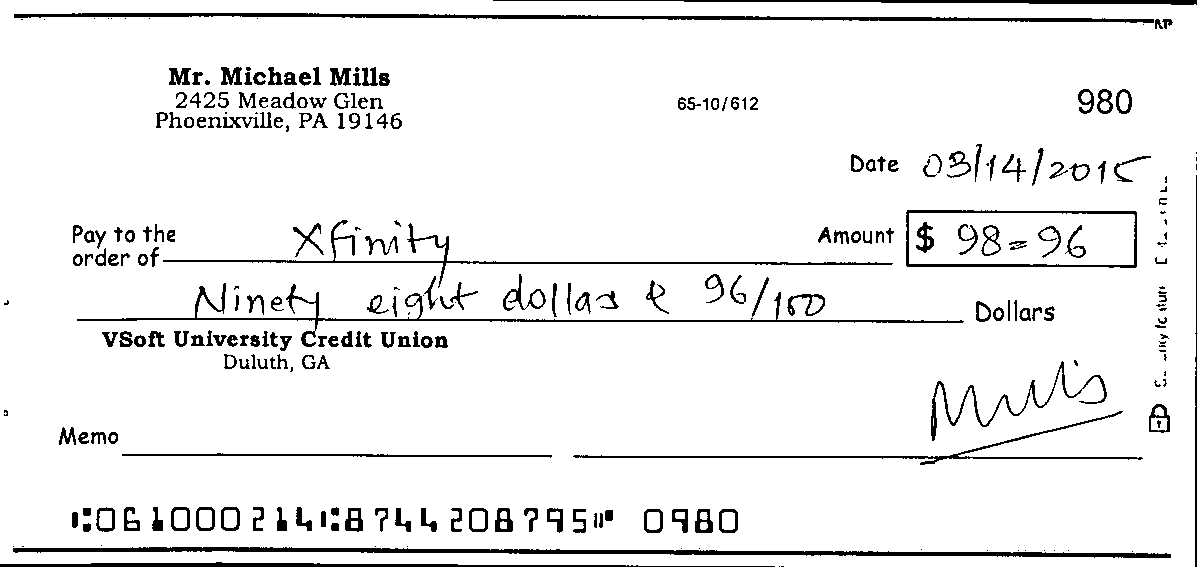 Mr. Michael Mills
2425 Meadow Glen
Phoenixville, PA 19146
65-10/612
980
Date 03/14/2015
Pay to the
order of Xfinity
Amount $ 98=96
Ninety eight dollas & 96/100 Dollars
VSoft University Credit Union
Duluth, GA
Mills
Memo
⑆061000214⑆8744208795⑈ 0980